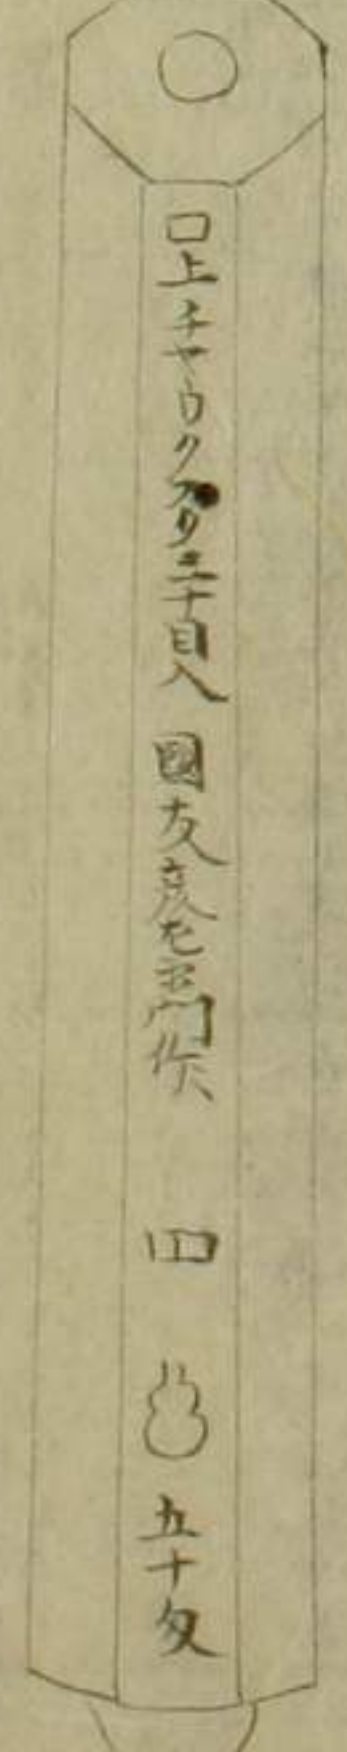 口上チヤウクスリ三十目入 國友彦左衛門作 四 五十匁